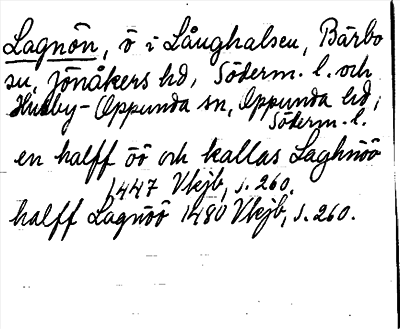 Lagnön, ö i Långhalsen, Bärbo
sn, Jönåkers hd, Söderm. l. och
Husby-Oppunda sn, Oppunda hd,
Söderm. l.
en halff öö och kallas Laghnöö
1447 Vkjb, s. 260.
halff Lagnöö 1480 Vkjb, s. 260.